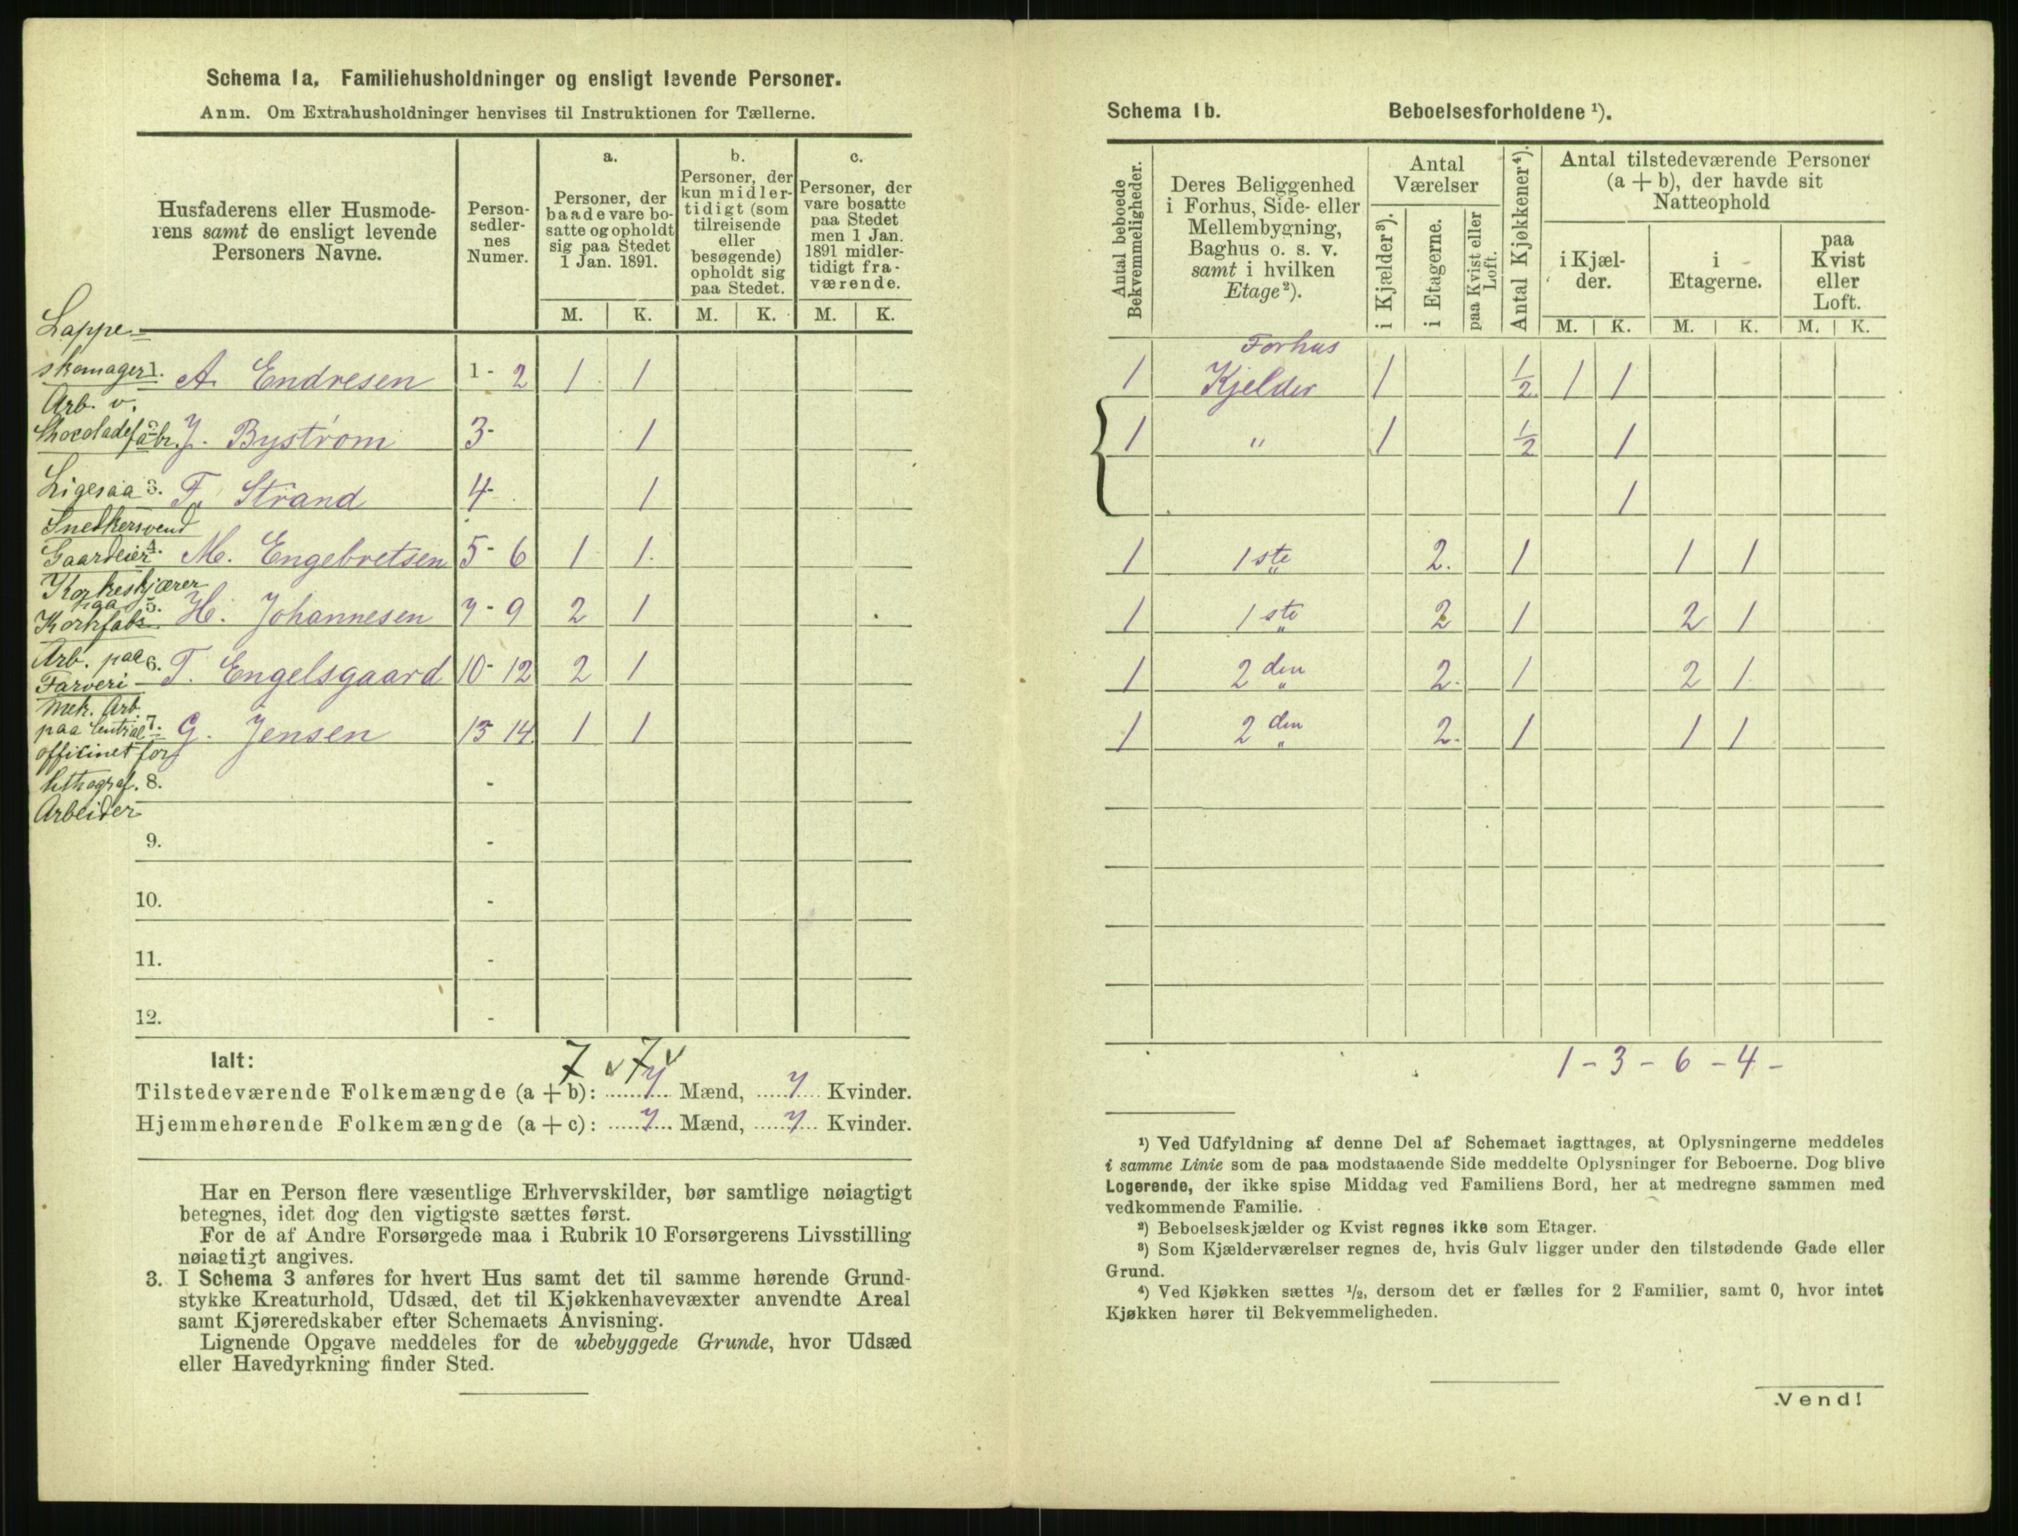 Schema 1a. Familiehusholdninger og ensligt levende Personer.
Anm. Om Extrahusholdninger henvises til Instruktionen for Tællerne.
Husfaderens eller Husmode-
rens samt de ensligt levende
Personers Navne.
Person-
sedler-
nes
Numer.
a.
Personer, der
baade vare bo-
satte og opholdt
sig paa Stedet
1 Jan. 1891.
b.
Personer, der
kun midler-
tidigt (som
tilreisende
eller
besøgende)
opholdt sig
paa Stedet.
c.
Personer, der
vare bosatte
paa Stedet
men 1 Jan.
1891 midler-
tidigt fra-
værende.
M. K. M. K. M. K.
Lappe-
skomager 1. A. Endresen 1 - 2 1 1
Arb. v.
Chocoladefabr. 2. J. Bystrøm 3 - 1
Ligesaa 3. F. Strand 4 - 1
Snedkersvend
Gaardeier 4. M. Engebretsen 5 - 6 1 1
Korkeskjærer
paa 5. H. Johannesen 7 - 9 2 1
Korkfabr.
Arb. paa 6. T. Engelsgaard 10 - 12 2 1
Farveri
Mek. Arb.
paa Central 7. G. Jensen 13 14 1 1
officinet for
lithograf. 8. -
Arbeider
9. -
10. -
11. -
12. -
Ialt: 7 v 7 v
Tilstedeværende Folkemængde (a + b): 7 Mænd, 7 Kvinder.
Hjemmehørende Folkemængde (a + c): 7 Mænd, 7 Kvinder.
Har en Person flere væsentlige Erhvervskilder, bør samtlige nøiagtigt
betegnes, idet dog den vigtigste sættes først.
For de af Andre Forsørgede maa i Rubrik 10 Forsørgerens Livsstilling
nøiagtigt angives.
3. I Schema 3 anføres for hvert Hus samt det til samme hørende Grund-
stykke Kreaturhold, Udsæd, det til Kjøkkenhavevæxter anvendte Areal
samt Kjøreredskaber efter Schemaets Anvisning.
Lignende Opgave meddeles for de ubebyggede Grunde, hvor Udsæd
eller Havedyrkning finder Sted.
Schema 1b. Beboelsesforholdene ¹).
Antal beboede
Bekvemmeligheder.
Deres Beliggenhed
i Forhus, Side- eller
Mellembygning,
Baghus o. s. v.
samt i hvilken
Etage²).
Antal
Værelser
i Kjælder³).
i Etagerne.
paa Kvist eller
Loft.
Antal Kjøkkener⁴).
Antal tilstedeværende Personer
(a + b), der havde sit
Natteophold
i Kjæl-
der.
i
Etagerne.
paa
Kvist
eller
Loft.
M. K. M. K. M. K.
Forhus
1 Kjelder 1 ½ 1 1
1 " 1 ½ 1
1
1 1ste 2. 1 1 1
1 1ste 2 1 2 1
1 2den 2. 1 2 1
1 2den 2. 1 1 1
1 - 3 - 6 - 4 -
¹) Ved Udfyldning af denne Del af Schemaet iagttages, at Oplysningerne meddeles
i samme Linie som de paa modstaaende Side meddelte Oplysninger for Beboerne. Dog blive
Logerende, der ikke spise Middag ved Familiens Bord, her at medregne sammen med
vedkommende Familie.
²) Beboelseskjælder og Kvist regnes ikke som Etager.
³) Som Kjælderværelser regnes de, hvis Gulv ligger under den tilstødende Gade eller
Grund.
⁴) Ved Kjøkken sættes ½, dersom det er fælles for 2 Familier, samt 0, hvor intet
Kjøkken hører til Bekvemmeligheden.
Vend!